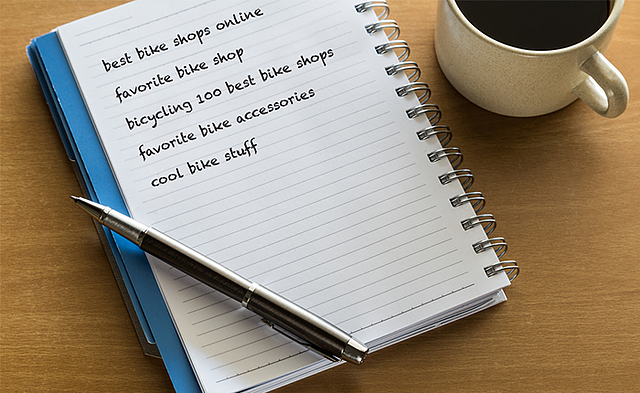 best bike shops online
favorite bike shop
bicycling 100 best bike shops
favorite bike accessories
cool bike stuff